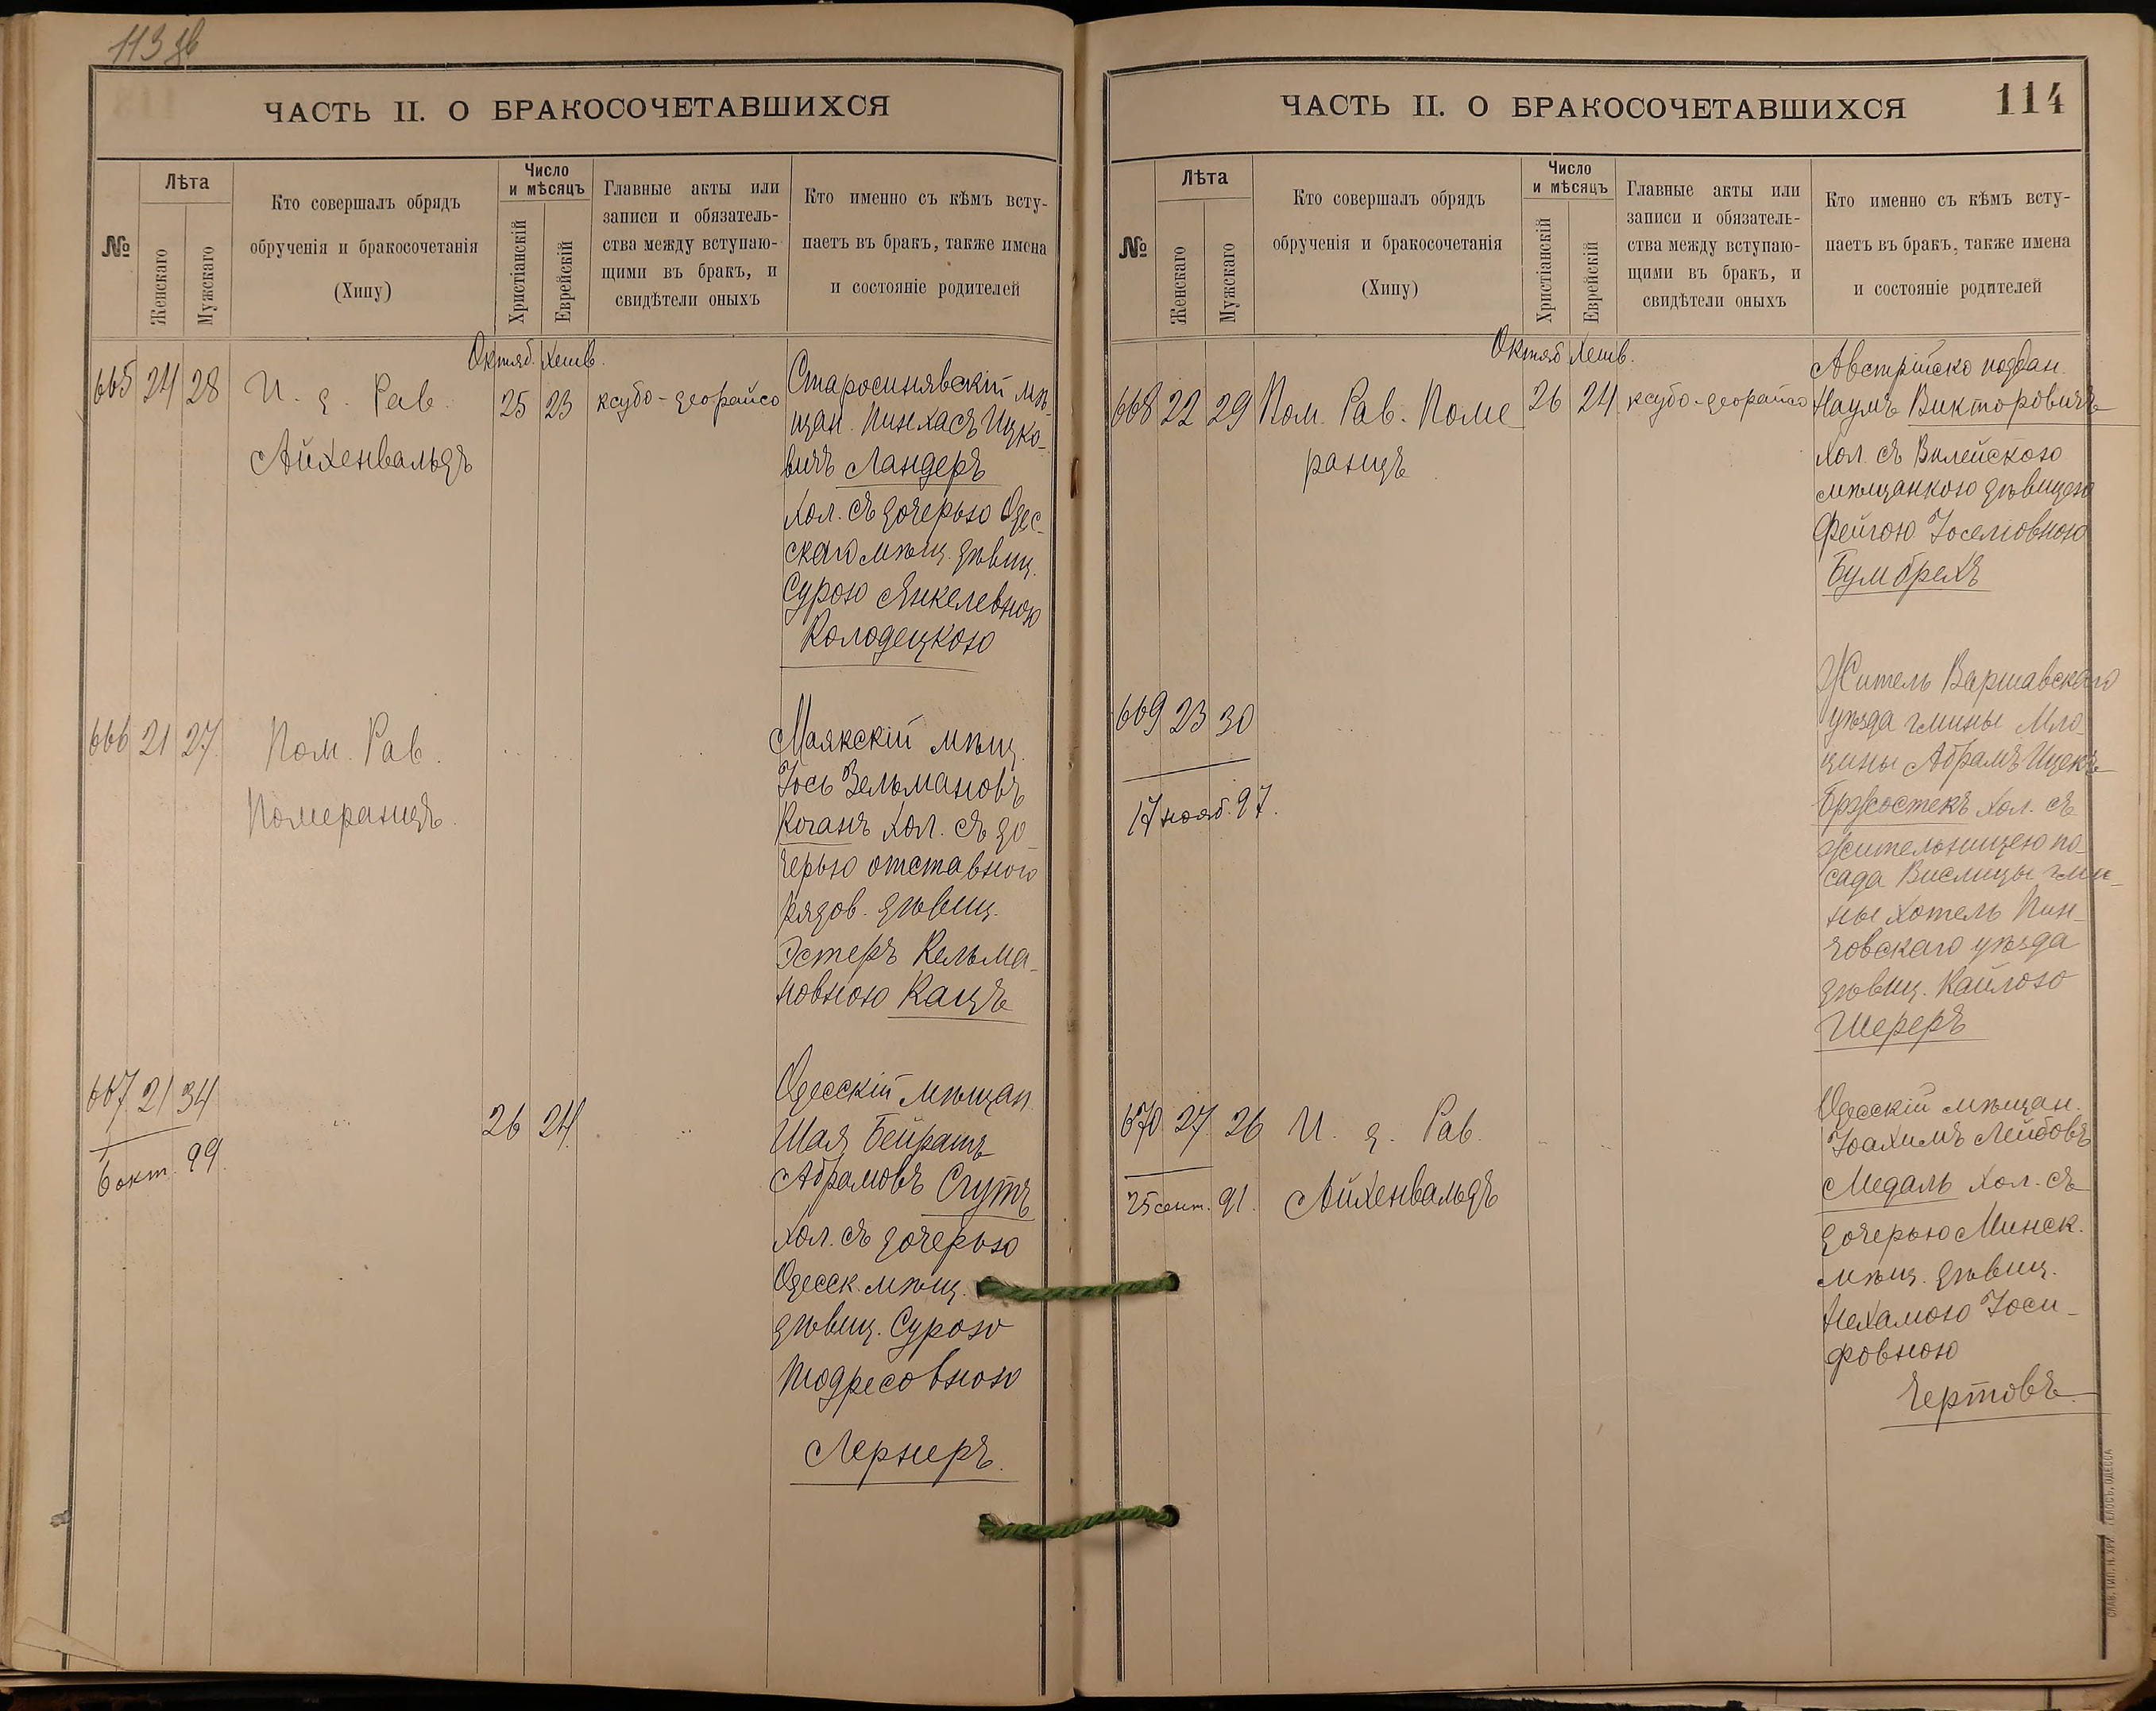 113 зв
ЧАСТЬ II. О БРАКОСОЧЕТАВШИХСЯ
№
Лѣта
Женскаго
Мужскаго
Кто совершалъ обрядъ
обрученія и бракосочетанія
(Хипу)
Число
и мѣсяцъ
Христіанскій
Еврейскій
Главные акты или
записи и обязатель-
ства между вступаю-
щими въ бракъ, и
свидѣтели оныхъ
Кто именно съ кѣмъ всту-
паетъ въ бракъ, также имена
и состояніе родителей
Октяб. Хешв.
665 24 28 И. д. Рав.
Айхенвальдъ
25 23 ксубо-деорайсо
Старосинявскій мѣ-
щан. Пинхасъ Ицко-
вичъ Ландеръ
хол. съ дочерью Одес-
скаго мѣщ. дѣвиц.
Сурою Янкелевною
Колодецкою
666 21 27 Пом. Рав.
Померанцъ.
Маякскій мѣщ.
Іось Зельмановъ
Коганъ хол. съ до
черью отставного
рядов. дѣвиц.
Эстеръ Кельма-
новною Кацъ
667 21 34
6 окт. 99.
26 24
Одесскій мѣщан.
Шая Бейратъ
Абрамовъ Спутъ
хол. съ дочерью
Одесск. мѣщ.
дѣвиц. Сурою
Тодресовною
Лернеръ.
ЧАСТЬ II. О БРАКОСОЧЕТАВШИХСЯ
114
№
Лѣта
Женскаго
Мужскаго
Кто совершалъ обрядъ
обрученія и бракосочетанія
(Хипу)
Число
и мѣсяцъ
Христіанскій
Еврейскій
Главные акты или
записи и обязатель-
ства между вступаю-
щими въ бракъ, и
свидѣтели оныхъ
Кто именно съ кѣмъ всту-
паетъ въ бракъ, также имена
и состояніе родителей
Октяб Хешв.
668 22 29 Пом. Рав. Поме
ранцъ
26 24 ксубо-деорайсо
Австрійско поддан.
Наумъ Викторовичъ
хол. съ Вилейскою
мѣщанкою дѣвицею
Фейгою Іоселіовною
Бумбрехъ
669 23 30
17 нояб. 97.
Житель Варшавскаго
уѣзда гмины Мло-
цины Абрамъ Ицекъ
Бржостекъ хол. съ
жительницею по-
сада Вислицы гми-
ны Хотель Пин-
човскаго уѣзда
дѣвиц. Кайлою
Шереръ
670 27 26 И. д. Рав.
25 сент. 91. Айхенвальдъ
Одесскій мѣщан.
Іоахимъ Лейбовъ
Медаль хол. съ
дочерью Минск.
мѣщ. дѣвиц.
Нехамою Іоси-
фовною
Чертовъ.